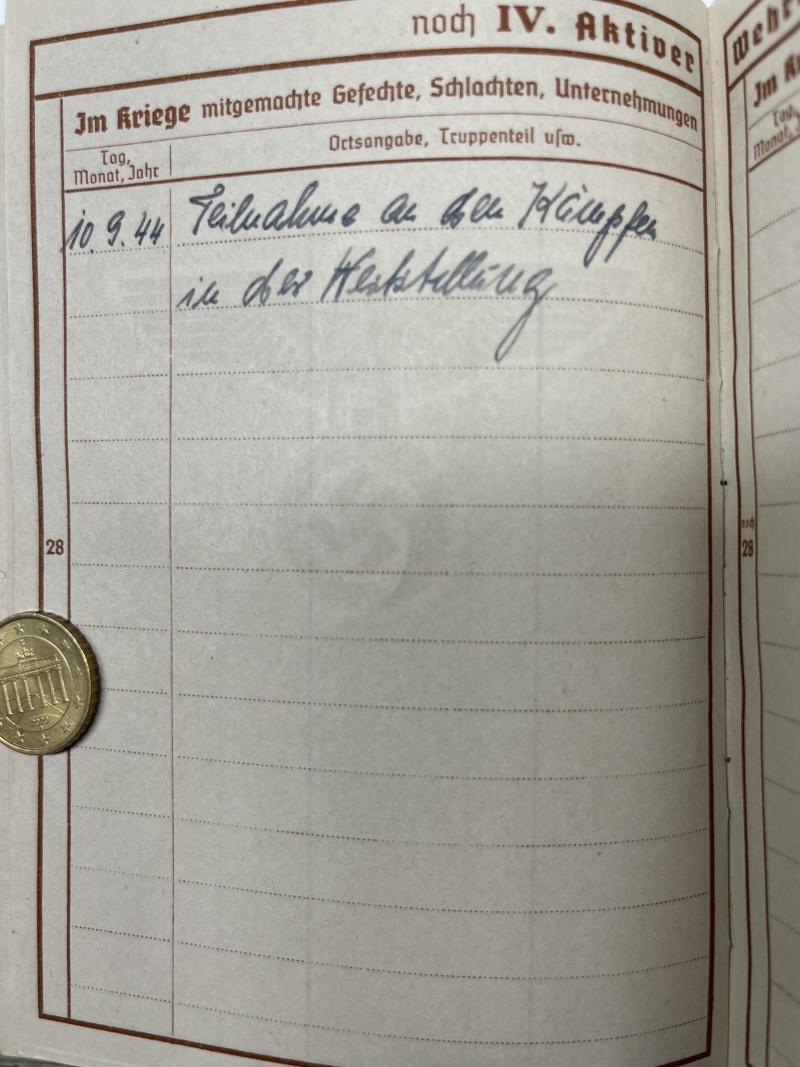 noch IV. Aktiver
Im Kriege mitgemachte Gefechte, Schlachten, Unternehmungen
Tag,
Monat, Jahr
Ortsangabe, Truppenteil usw.
10.9.44 Teilnahme an den Kämpfen
in der Weststellung
28
Wehr
Im Kr
Tag,
Monat,
noch
28